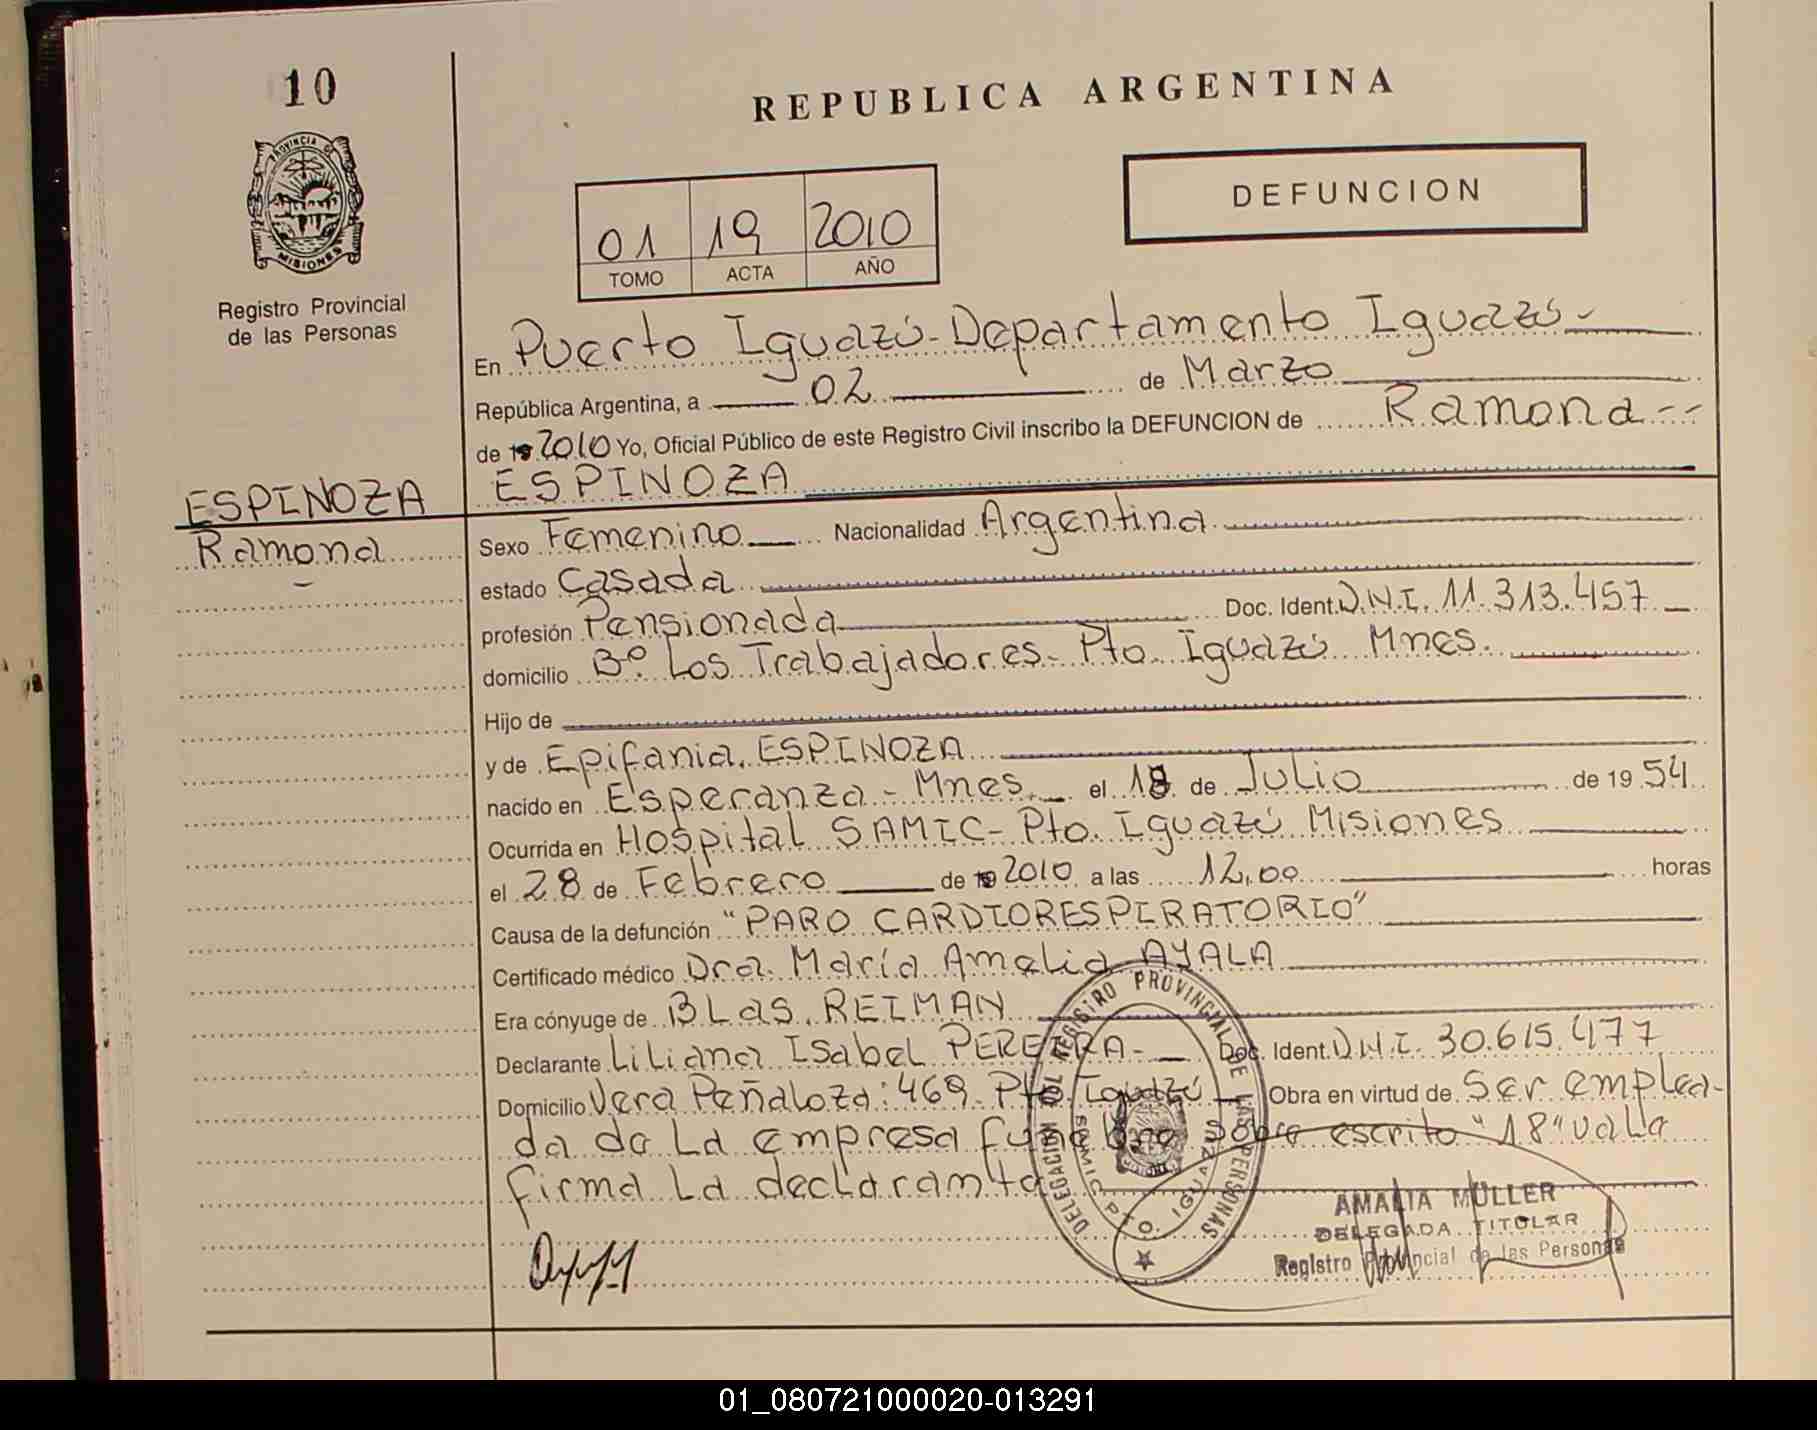 10
REPUBLICA ARGENTINA
PROVINCIA DE
MISIONES
Registro Provincial
de las Personas
DEFUNCION
01 19 2010
TOMO ACTA AÑO
En Puerto Iguazú - Departamento Iguazú -
República Argentina, a 02 de Marzo
de 19 2010 Yo, Oficial Público de este Registro Civil inscribo la DEFUNCION de Ramona --
ESPINOZA
ESPINOZA
Ramona
Sexo Femenino Nacionalidad Argentina
estado Casada
profesión Pensionada Doc. Ident. D.N.I. 11.313.457
domicilio Bº. Los Trabajadores - Pto. Iguazú Mnes.
Hijo de
y de Epifania ESPINOZA
nacido en Esperanza - Mnes. el 18 de Julio de 19 54
Ocurrida en Hospital SAMIC - Pto. Iguazú Misiones
el 28 de Febrero de 19 2010 a las 12,00 horas
Causa de la defunción "PARO CARDIORESPIRATORIO"
Certificado médico Dra. María Amelia AYALA
Era cónyuge de BLas REIMAN
Declarante Liliana Isabel PEREIRA - Doc. Ident. D.N.I. 30.615.477
Domicilio Vera Peñaloza: 469 - Pto. Iguazú Obra en virtud de Ser emplea-
da de La empresa funebre sobre escrito "18" vale
firma La declarante
DELEGACION DEL REGISTRO PROVINCIAL DE LAS PERSONAS
SAMIC PTO. IGUAZU
AMALIA MULLER
DELEGADA TITULAR
Registro Provincial de las Personas
01_080721000020-013291